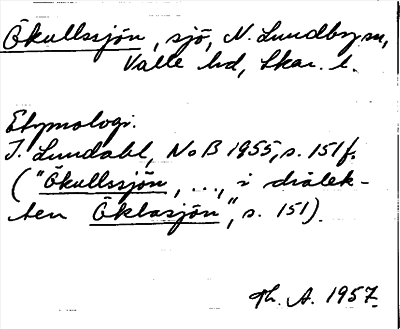 Ökullssjön, sjö, N. Lundby sn,
Valle hd, Skar. l.
Etymologi.
I. Lundahl, NoB 1955, s. 151f.
("Ökullssjön, ..., i dialek-
ten Öklasjön", s. 151).
Th. A. 1957.